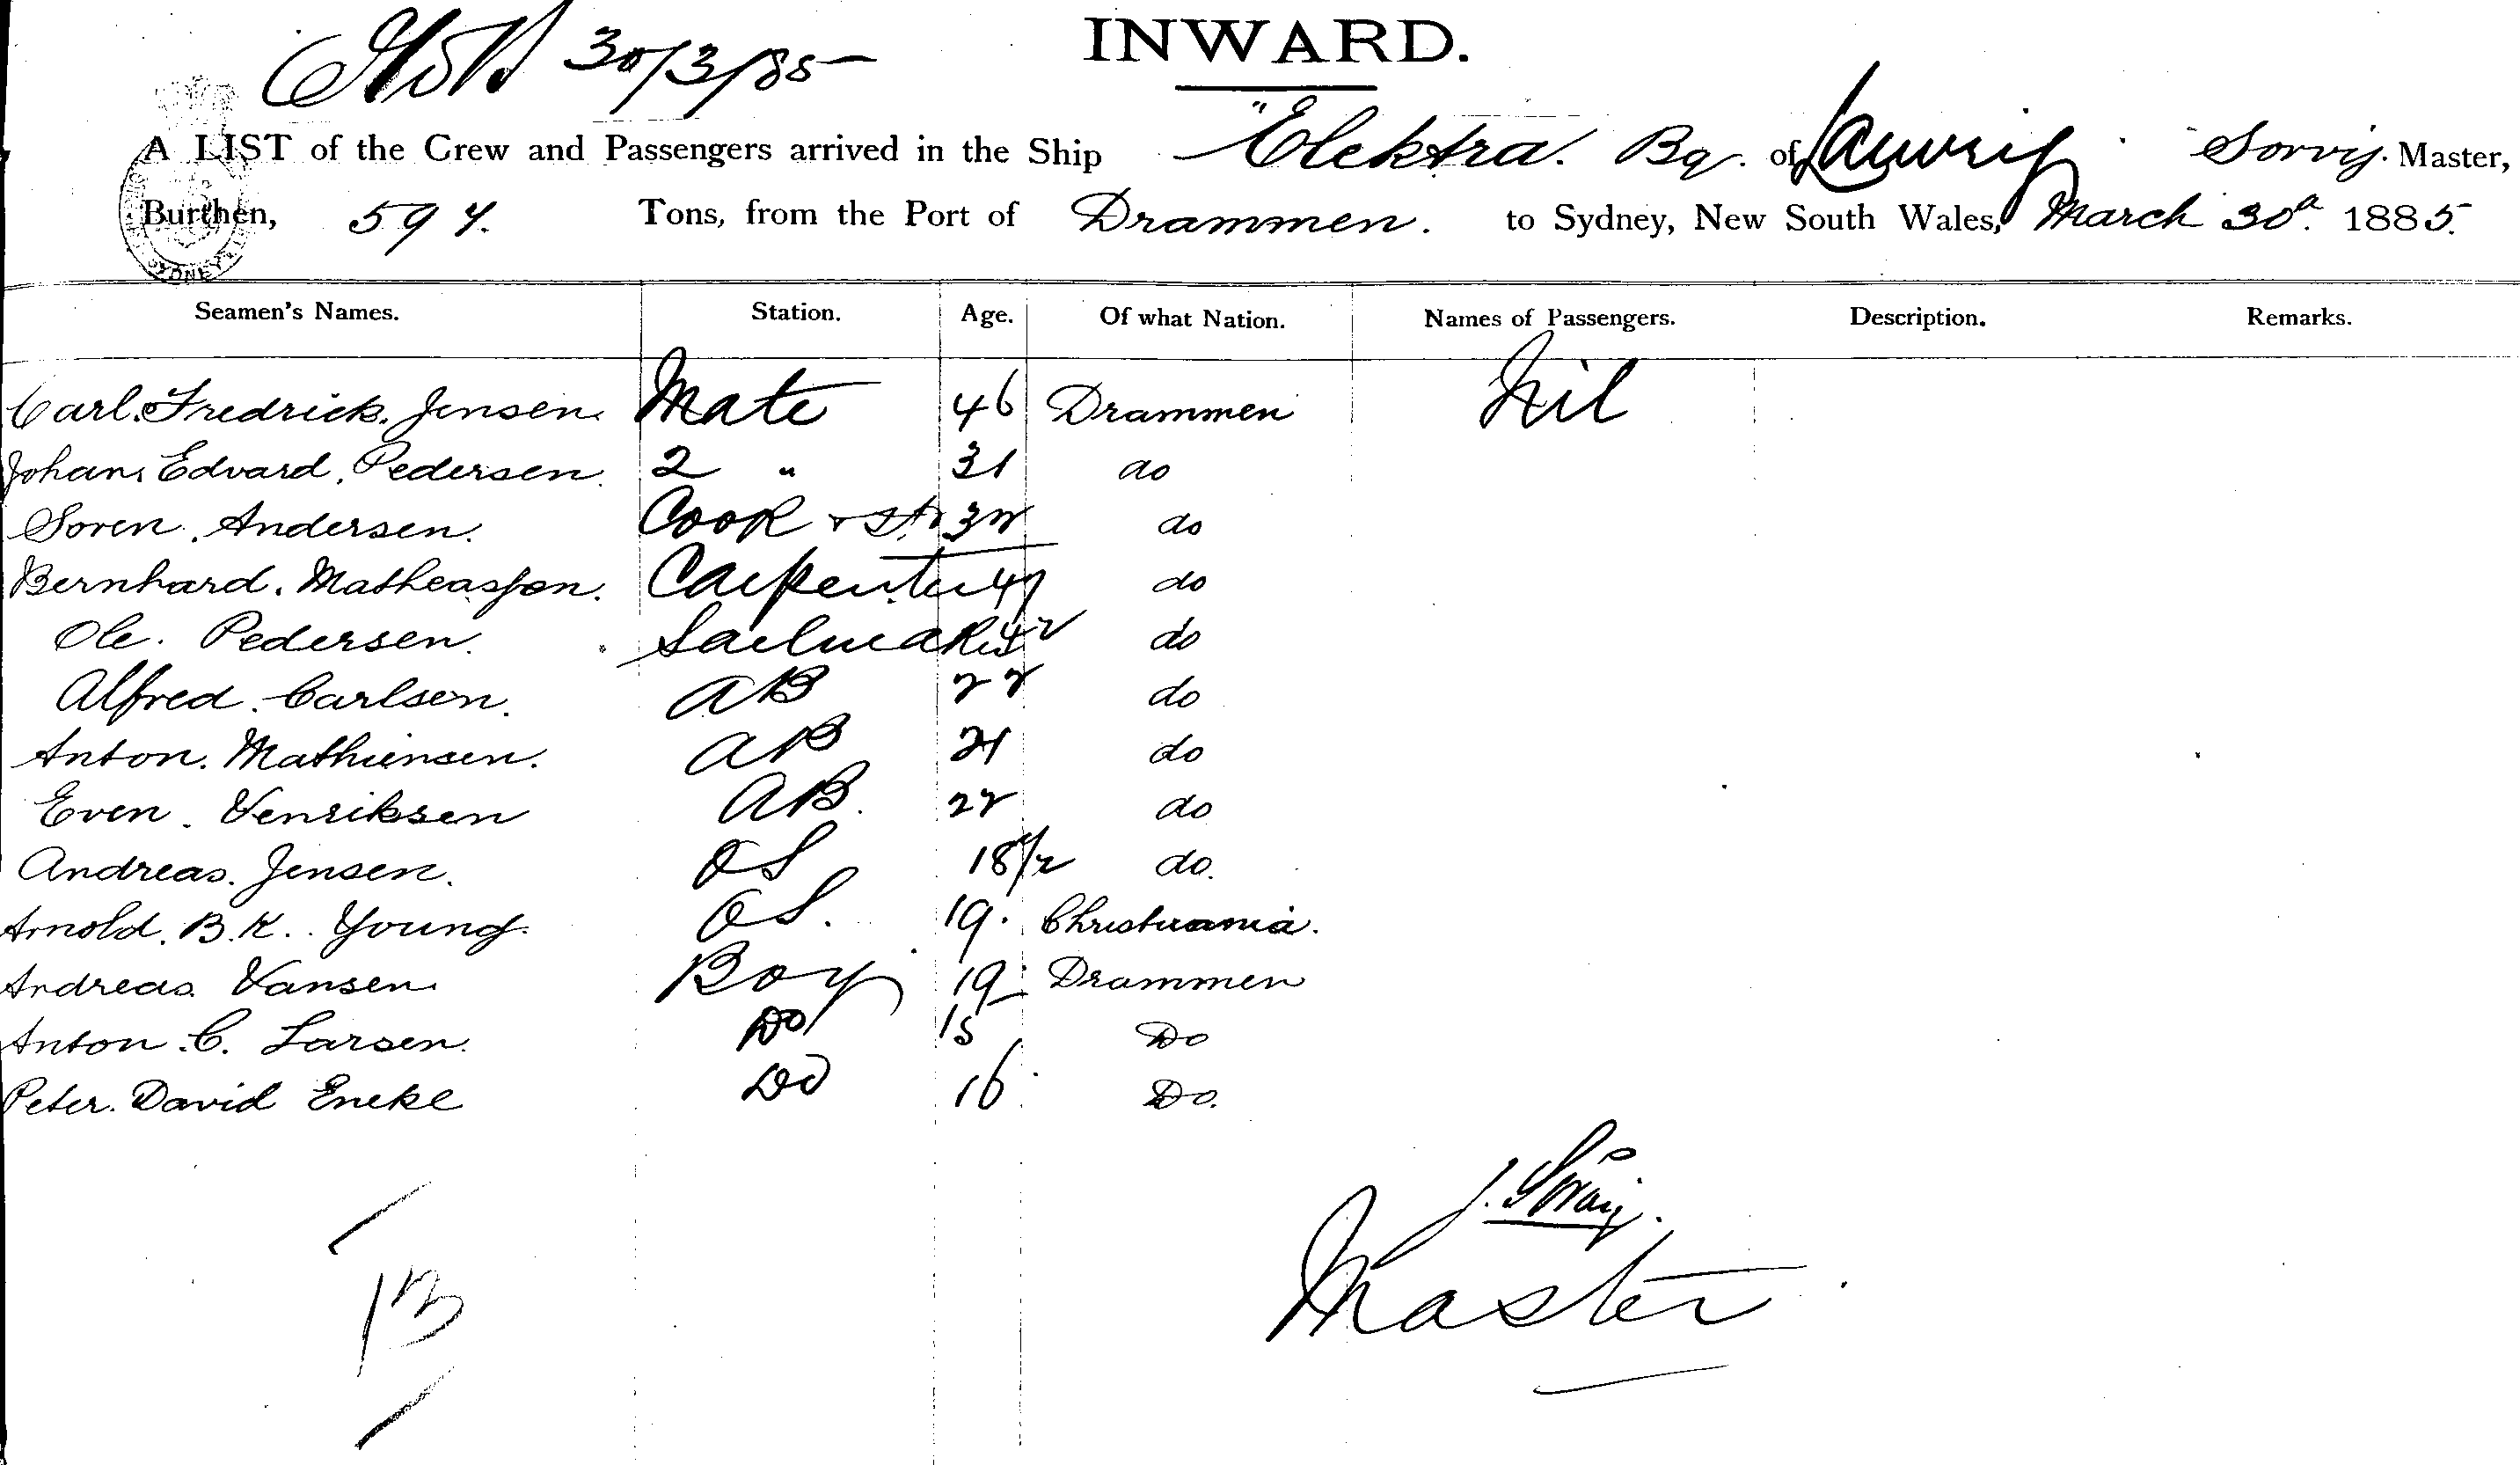 30/3/85
INWARD.
A LIST of the Crew and Passengers arrived in the Ship "Elektra. Bq. of Master,
Burthen, 597. Tons, from the Port of Drammen. to Sydney, New South Wales, March 30th. 1885.
Seamen's Names. Station. Age. Of what Nation. Names of Passengers. Description. Remarks.
Carl. Fredrick. Jensen. Mate 46 Drammen Nil
Johan. Edvard. Pedersen. 2 " 31 do
Soren. Andersen. Cook + St. 32 do
Bernhard. Matheassen. Carpenter 47 do
Ole. Pedersen. Sailmaker 42 do
Alfred. Carlsen. AB 22 do
Anton. Mathiensen. AB 21 do
Even. Henriksen AB. 22 do
Andreas. Jensen. OS 18 1/2 do.
Arnold. B. K. Young. OS. 19. Christiania.
Andreas. Hansen. Boy 19 Drammen
Anton. C. Larsen. Do 15 Do
Peter. David Encke Do 16 Do.
Master
13
SYDNEY